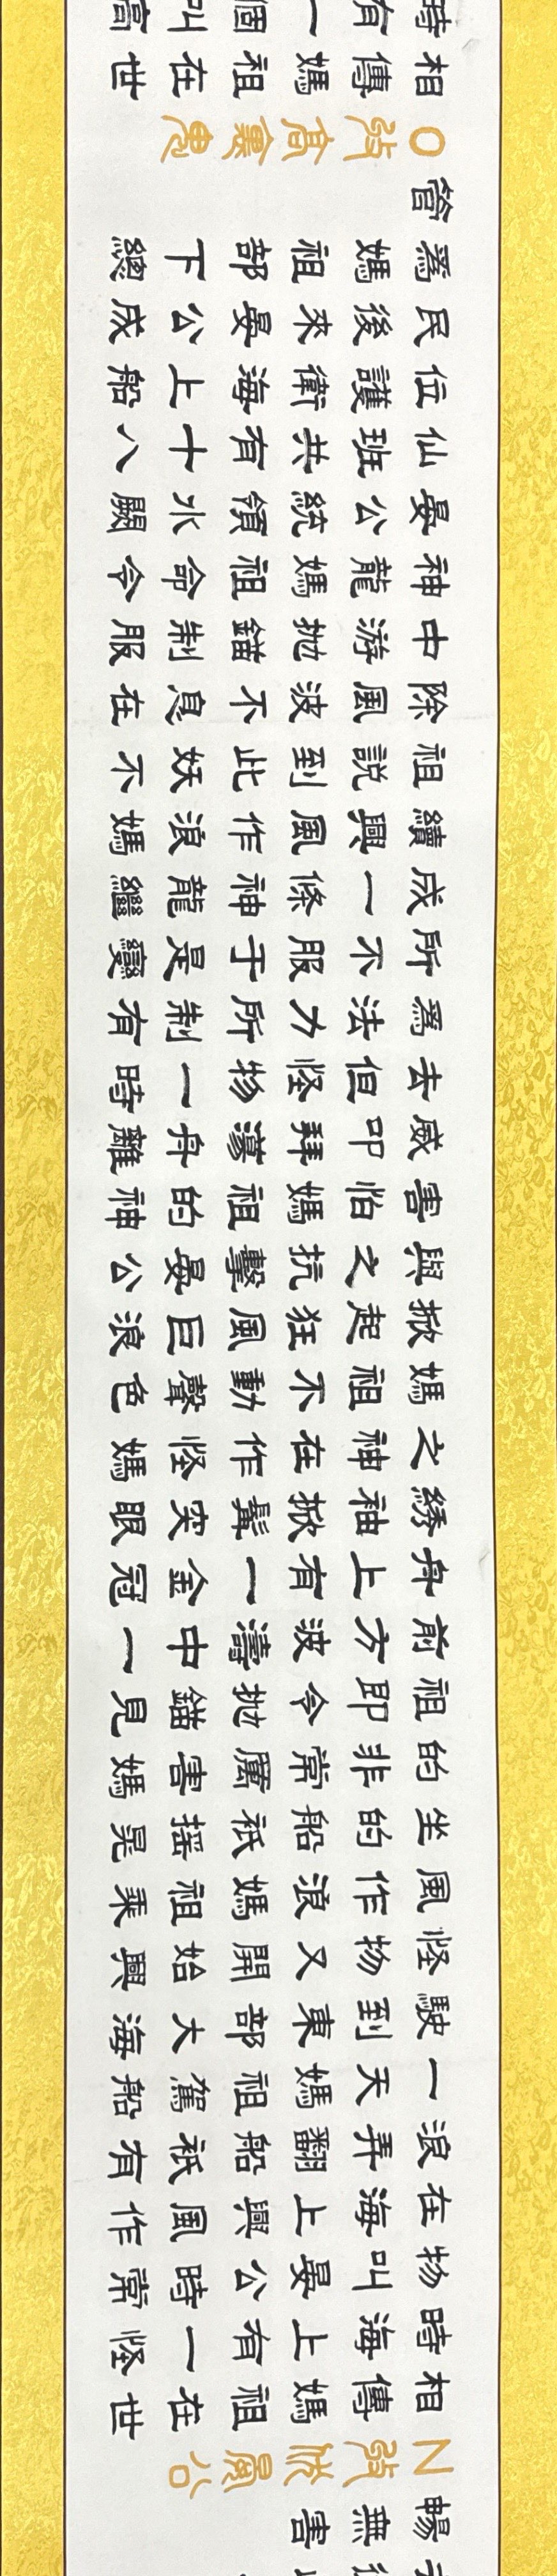 暢無害
N 收伏晏公
相傳媽祖在世
時海上有一怪
物叫晏公時常
在海上興風作
浪弄翻船祇有
一天媽祖駕船
駛到東部大海
怪物又開始興
風作浪媽祖乘
坐的船祇搖晃
的非常厲害媽
祖即令拋錨見
前方波濤中一
舟上有一金冠
綉袖掀髯突眼
之神在作怪媽
媽祖不動聲色
掀起狂風巨浪
與之抗擊晏公
害怕媽祖的神
威叩拜蕩舟離
去但怪物一時
爲法力所制有
所不服于是變
成一條神龍繼
續興風作浪媽
祖說到此妖不
除風波不息在
中游拋錨制服
神龍媽祖命令
晏公統領水厥
仙班共有十八
位護衛海上船
民後來晏公成
爲媽祖部下總
管
O 收高裏鬼
相傳媽祖在世
時有一個叫高